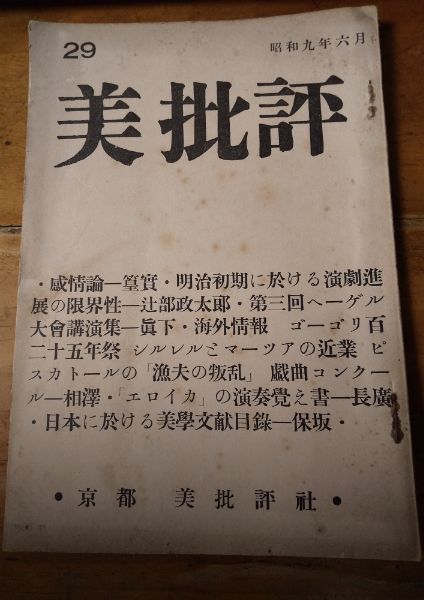 29
昭和九年六月
美批評
・感情論—篁實・明治初期に於ける演劇進
展の限界性—辻部政太郎・第三回ヘーゲル
大會講演集—眞下・海外情報 ゴーゴリ百
二十五年祭 シルレルとマーツアの近業 ピ
スカトールの「漁夫の叛乱」 戯曲コンクー
ル—相澤・「エロイカ」の演奏覺え書—長廣
・日本に於ける美學文献目錄—保坂・
・京都 美批評社・